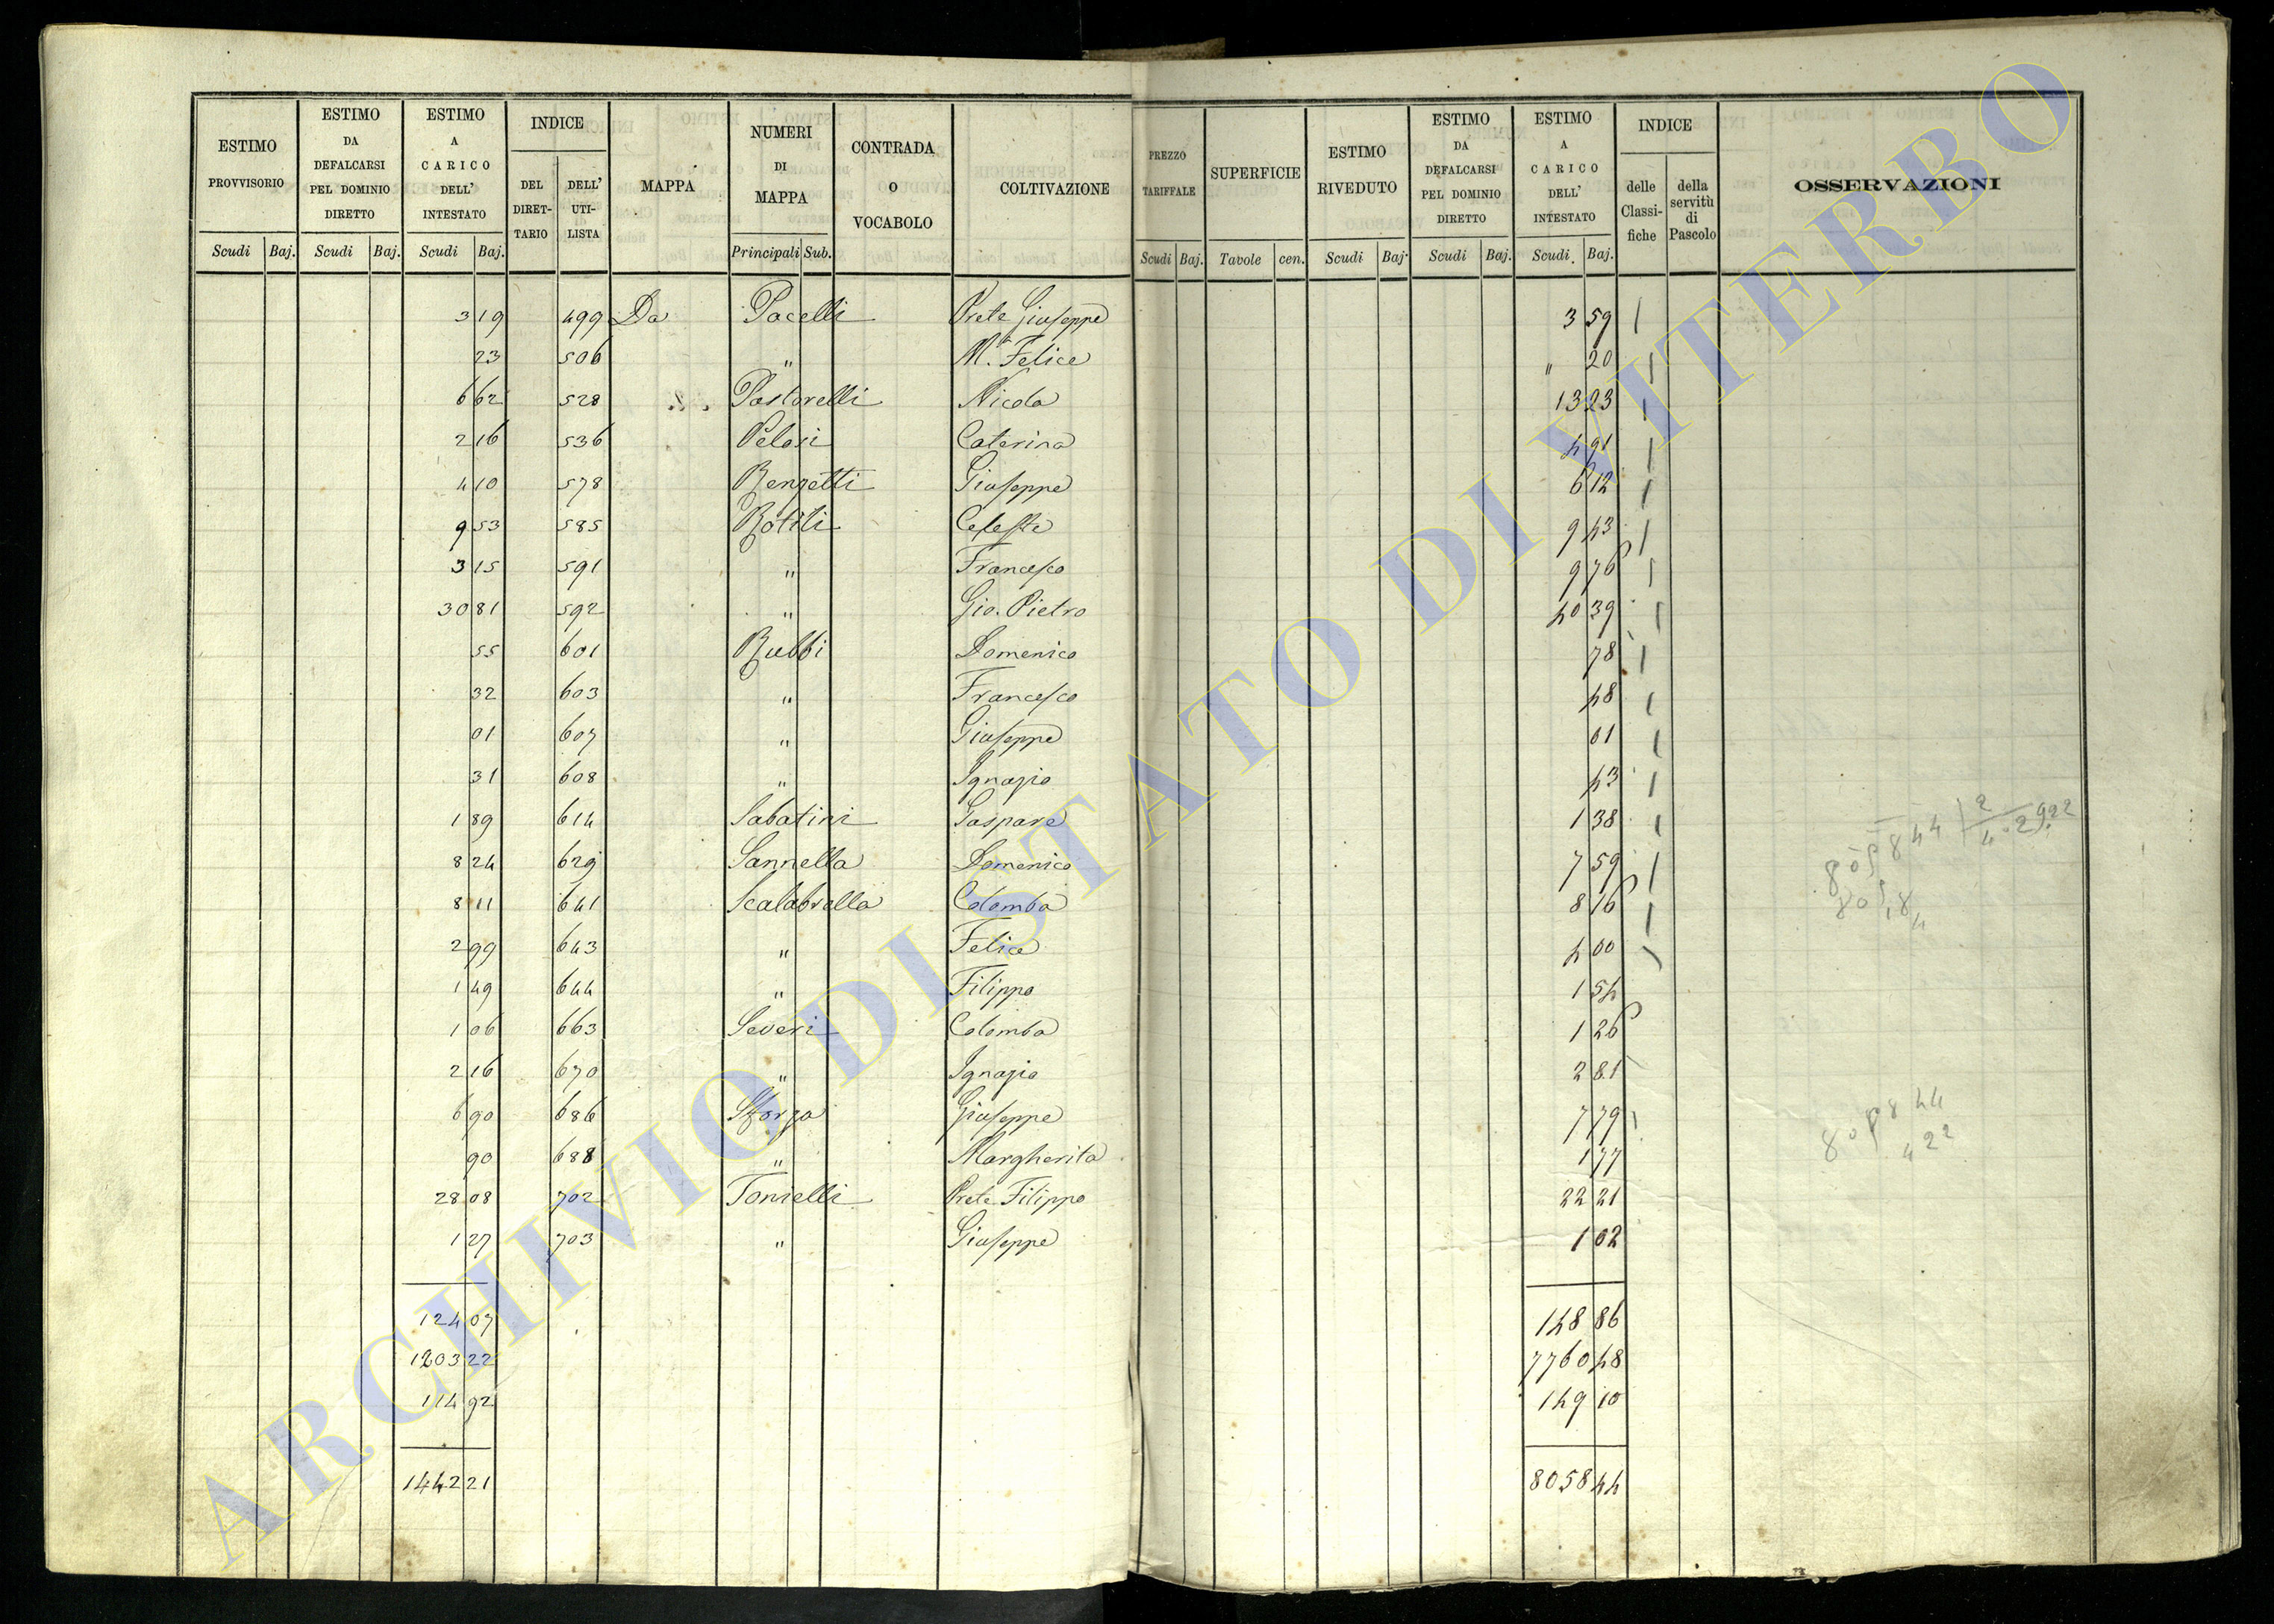 ESTIMO PROVVISORIO | ESTIMO DA DEFALCARSI PEL DOMINIO DIRETTO | ESTIMO A CARICO DELL' INTESTATO | INDICE | MAPPA | NUMERI DI MAPPA | CONTRADA O VOCABOLO | COLTIVAZIONE | PREZZO TARIFFALE | SUPERFICIE | ESTIMO RIVEDUTO | ESTIMO DA DEFALCARSI PEL DOMINIO DIRETTO | ESTIMO A CARICO DELL' INTESTATO | INDICE | OSSERVAZIONI
DEL DIRETTARIO | DELL' UTILISTA | delle Classifiche | della servitù di Pascolo
Scudi | Baj. | Scudi | Baj. | Scudi | Baj. | Principali | Sub. | Scudi | Baj. | Tavole | cen. | Scudi | Baj. | Scudi | Baj. | Scudi | Baj.
3 19 | 499 | Da | Pacelli | Prete Giuseppe | 3 59
23 | 506 | " | Ma. Felice | " 20
6 62 | 528 | Pastorelli | Nicola | 13 23
2 16 | 536 | Pelosi | Caterina | 4 91
4 10 | 578 | Renzetti | Giuseppe | 6 12
9 53 | 585 | Rotili | Celeste | 9 43
3 15 | 591 | " | Francesco | 9 76
30 81 | 592 | " | Gio. Pietro | 40 39
55 | 601 | Rubbi | Domenico | 78
32 | 603 | " | Francesco | 48
01 | 607 | " | Giuseppe | 01
31 | 608 | " | Ignazio | 43
1 89 | 614 | Sabatini | Gaspare | 1 38
8 24 | 629 | Sannella | Domenico | 7 59
8 11 | 641 | Scalabrella | Colomba | 8 16
2 99 | 643 | " | Felice | 4 00
1 49 | 644 | " | Filippo | 1 54
1 06 | 663 | Severi | Colomba | 1 26
2 16 | 670 | " | Ignazio | 2 81
6 90 | 686 | Sforza | Giuseppe | 7 79
90 | 688 | " | Margherita | 1 77
28 08 | 702 | Tonielli | Prete Filippo | 22 21
1 27 | 703 | " | Giuseppe | 1 02
124 07 | 148 86
1203 22 | 7760 48
114 92 | 149 10
1442 21 | 8058 44
805844
422
ARCHIVIO DI STATO DI VITERBO